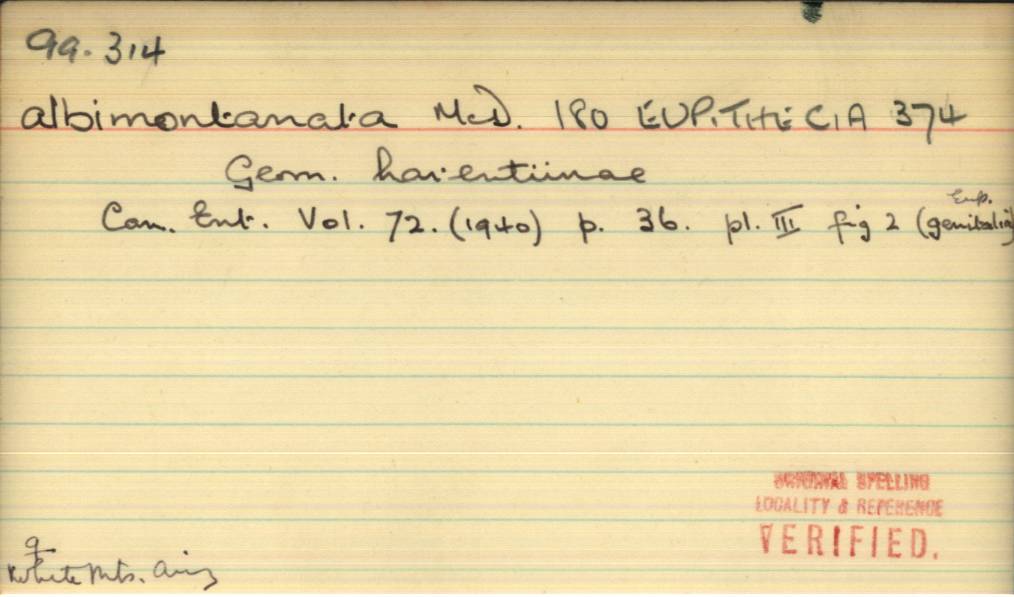 99.314
albimontanata McD. 180 EUPITHECIA 374
Geom. Larentiinae
Eup.
Can. Ent. Vol. 72. (1940) p. 36. pl. III fig 2 (genitalia)
ORIGINAL SPELLING
LOCALITY & REFERENCE
VERIFIED.
♀
White Mts. Ariz